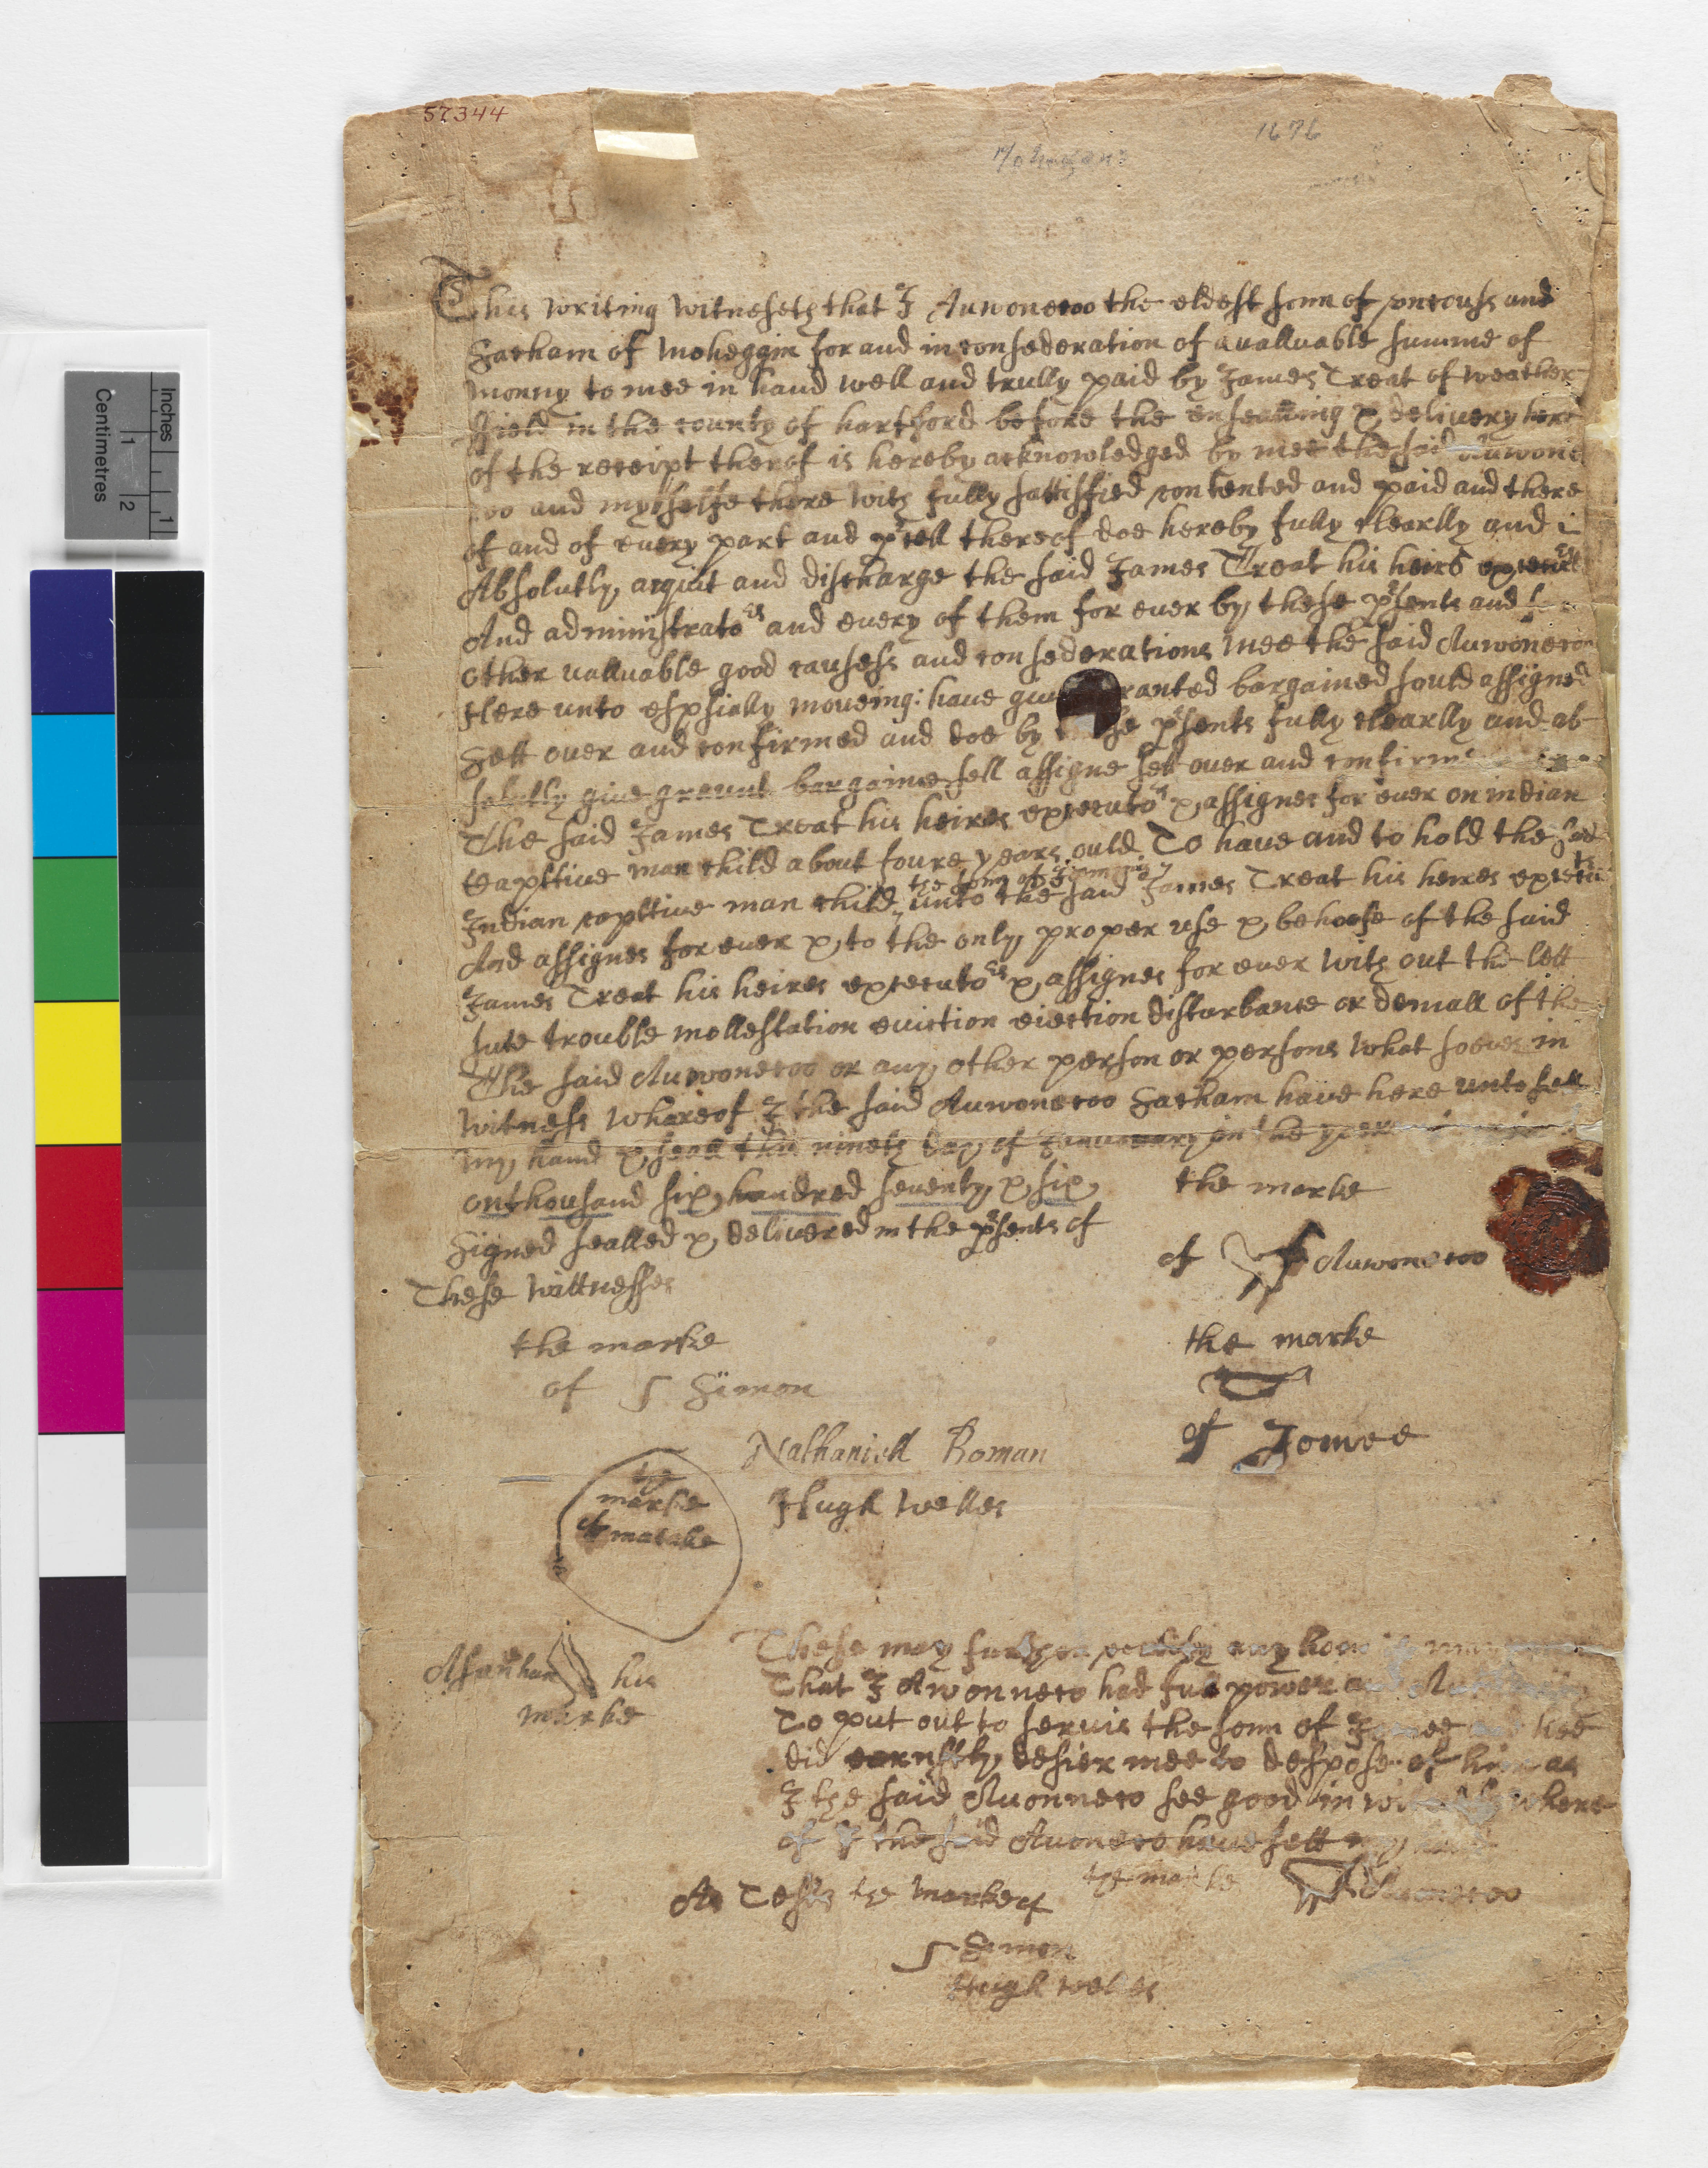 57344
1676
This writing witneseth that I Auwonecoo the eldest sonn of oncouss and
Sacham of moheggin for and in consederation of a valluable summe of
monny to mee in hand well and trully paid by James Treat of weather-
field in the county of hartford before the ensealling & delivery here
of the receipt therof is hereby acknowledged by mee the said Auwone
coo and mysselfe there with fully sattisfied contented and paid and there
of and of every part and p'cell thereof doe hereby fully clearlly and
Absolutly acquit and discharge the said James Treat his heirs
And administrato rs and every of them for ever by these p'sents and
other valluable good causess and consederations mee the said Auwonecoo
there unto espsially moveing: have ranted bargained sould assigned
Sett over and confirmed and doe by p'sents fully clearlly and ab-
solutly give graunt bargaine sell assigne sett over and confirme
The said James Treat his heires executo rs & assignes for ever on indian
capttive man child about foure years ould To have and to hold the said
the sonn of
Indian capttive man child unto the said James Treat his heires executo rs
And assignes for ever & to the only proper use & behoofe of the said
James Treat his heires executo rs & assignes for ever with out the lett
sute trouble mollestation eviction eiection disturbance or deniall of the
The said Auwonecoo or any other person or persons what soever in
witness whareof I the said Auwonecoo Sacham have here unto sett
my hand & seall this nineth day of January in the year
onthousand six hundred seventy & six
the marke
Signed sealled & delivered in the p'sents of
of Auwonecoo
These wittnesses
the marke
of Simon
the marke
of Jowee
Nathaniell Boman
Hugh Welles
the
marke
of
his
marke
These may further
That I Awonneco had full power
To put out to servis the sonn of hee
did earnstly desier mee to despose of him as
I the said Auonneco see good in where
of I the said Auoneco have sett my
As Tests the marke of
the marke Auonecoo
Simon
Hugh welles
Inches
1
Centimetres
1
2